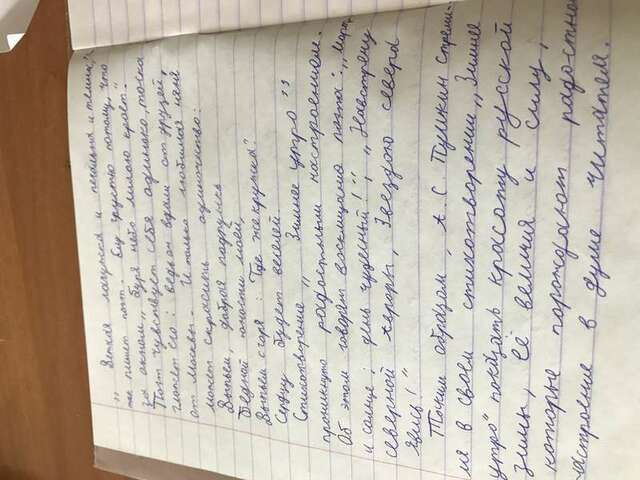 „ Ветхая лачужка и печальна и темна,"-
так пишет поэт. Ему грустно потому, что
за окном „буря небо мглою кроет".
Поэт чувствует себя одиноко, тоска
гложет его: ведь он вдали от друзей,
от Москвы. И только любимая няня
может скрасить одиночество:
Выпьем, добрая подружка
Бедной юности моей,
Выпьем с горя: Где же кружка?
Сердцу будет веселей
Стихотворение „ Зимнее утро "
проникнуто радостным настроением.
Об этом говорят восклицания поэта: „Мороз
и солнце; день чудесный!"; „Навстречу
северной Авроры, Звездою севера
явись!"
Таким образом, А. С. Пушкин стреми-
лся в своем стихотворении „Зимнее
утро" показать красоту русской
зимы, её величия и силу,
которые порождают радостное
настроение в душе читателя.